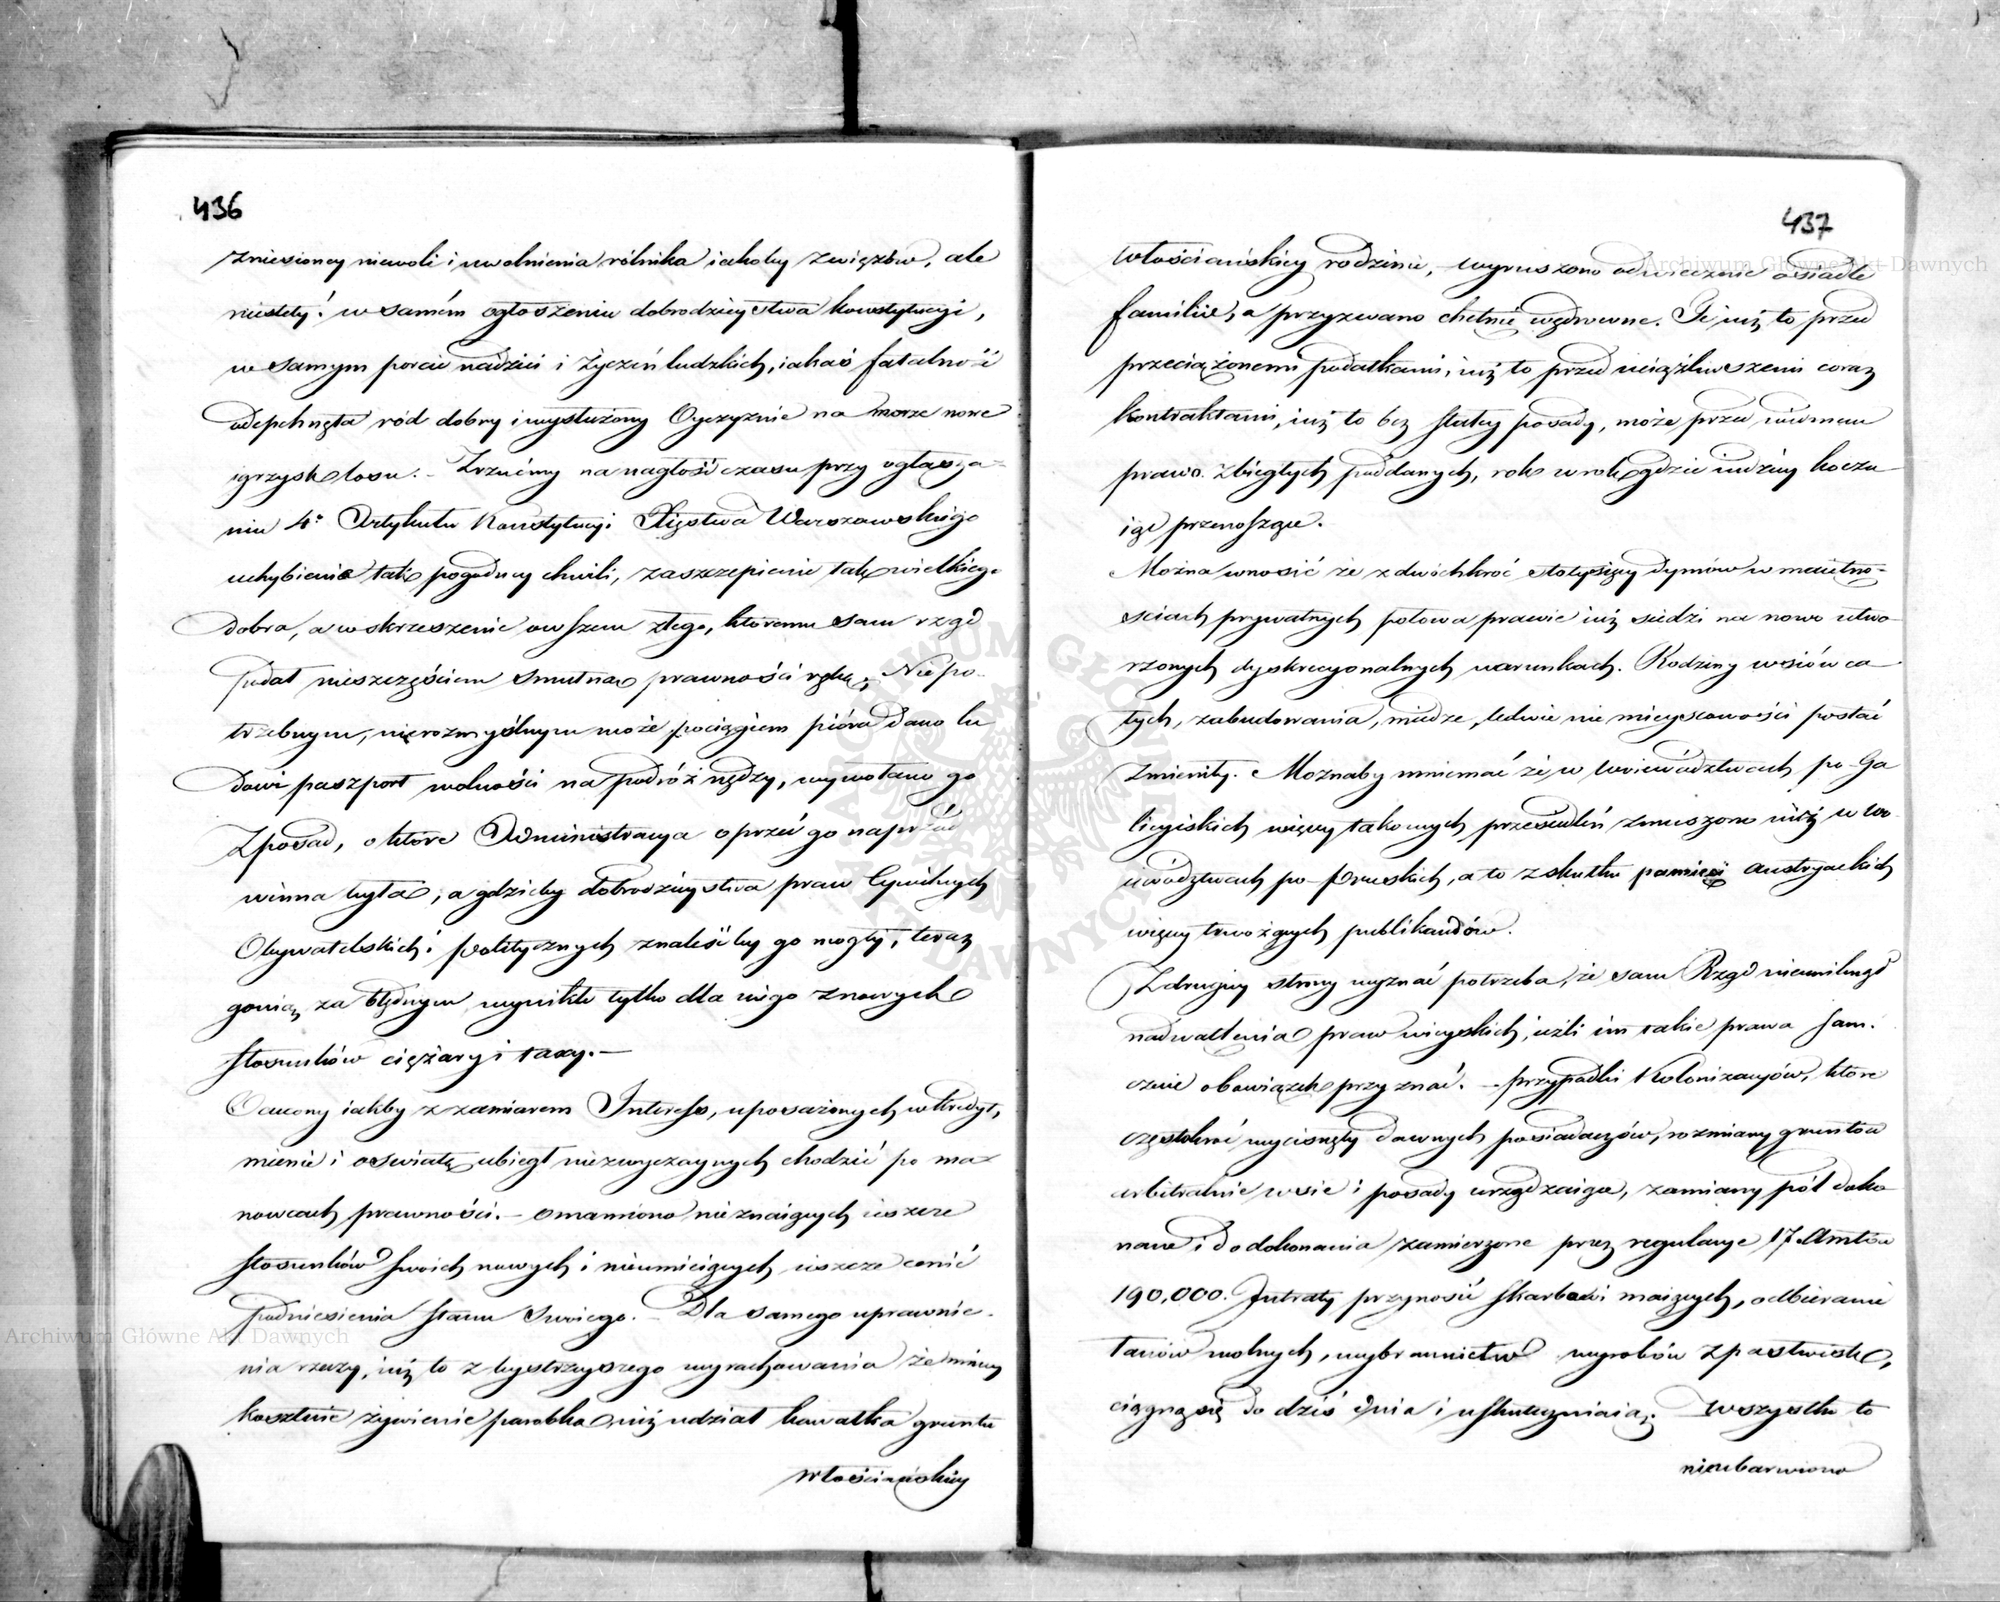 436
zniesioney niewoli i uwolnienia rólnika iakoby z więzów, ale
niestety! w samém ogłoszeniu dobrodzieystwa konstytucyi,
w samym porcie nadziei i życzeń ludzkich, iakaś fatalność
odepchnęła ród dobry i wysłużony Oyczyznie na morze nowe
igrzysk losu. – Zrzućmy na nagłość czasu przy ogłasza-
niu 4º Artykułu Konstytucyi Xięstwa Warszawskiego
uchybienie tak pogodney chwili, zaszczepienie tak wielkiego
dobra, a wskrzeszenie owszem złego, któremu sam rząd
podał nieszczęściem smutną prawności rękę. Niepo-
trzebnym, nierozmyślnym może pociągiem pióra dano lu
dowi paszport wolności na podróż nędzy, wywołano go
z posad, o które Administracya oprzeć go naprzód
winna była, a gdzieby dobrodzieystwa praw Cywilnych
Obywatelskich i politycznych znaleść by go mogły, teraz
gonią za błędnym wynikłe tylko dla niego z nowych
stosunków ciężary i taxy. –
Ocucony iakby z zamiarem Interess, uposażonych w kredyt,
mienie i oswiatę ubiegł niezwyczaynych chodzić po ma-
nowcach prawności. – omamiono nieznaiących ieszcze
stosunków swoich nowych i nieumieiących ieszcze cenić
podniesienia stanu swoiego. – Dla samego uprawnie-
nia rzeczy, iuż to z bystrzyszego wyrachowania że mniey
kosztuie żywienie parobka niż udział kawałka gruntu
włościańskiey
437
włościańskiey rodzinie, wyruszono odwiecznie osiadłe
familie, a przyzwano chętnie wędrowne. Te iuż to przed
przeciążonemi podatkami, iuż to przed uciążliwszemi coraz
kontraktami, iuż to bez stałey posady, może przed niemem
prawo zbiegłych poddanych, rok w rok gdzie indziey koczu-
iąc przenoszą się.
Można wnosić że z dwóchkroć stotysięcy dymów w maiętno-
sciach prywatnych połowa prawie iuż siedzi na nowo utwo-
rzonych dyskrecyonalnych warunkach. Rodziny wsiów ca-
łych, zabudowania, miedze, ledwie nie mieyscowości postać
zmieniły. Moznaby mniemać że w Woiewództwach po-Ga
licyiskich więcey takowych przesiedleń zmuszono niż w Wo-
iewództwach po-Pruskich, a to z skutku pamięci austryackich
więcey trwożących publikandów.
Z drugiey strony wyznać potrzeba, że sam Rząd nieuniknął
nadwaltenia praw wieyskich, ieżli im takie prawa sam.
czuie obowiązek przyznać. – przypadki Kolonizacyów, które
częstokroć wycisnęły dawnych posiadaczów, rozmiary gruntów
arbitralnie wsie i posady urządzaiące, zamiany pól doko-
nane i do dokonania zamierzone przez regulacye 17. Amtów
190,000. Intraty przynosić skarbowi maiących, odbieranie
łanów wolnych, wybraniectw wyrobów z pastwisk,
ciągną się do dziś dnia i uskuteczniaią. Wszystko to
nieubarwione